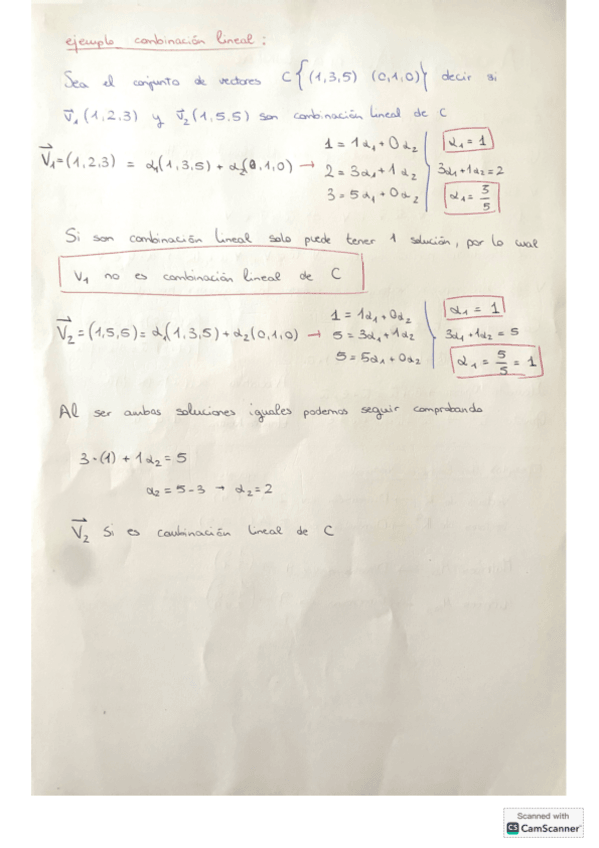 ejemplo combinación lineal:
Sea el conjunto de vectores C{(1,3,5) (0,1,0)} decir si
V⃗₁(1,2,3) y V⃗₂(1,5,5) son combinación lineal de C
V⃗₁=(1,2,3) = α₁(1,3,5) + α₂(0,1,0) →
1 = 1α₁ + 0α₂
2 = 3α₁ + 1α₂
3 = 5α₁ + 0α₂
α₁ = 1
3α₁+1α₂=2
α₁ = 3/5
Si son combinación lineal solo puede tener 1 solución, por lo cual
V₁ no es combinación lineal de C
V⃗₂=(1,5,5)= α₁(1,3,5)+α₂(0,1,0) →
1 = 1α₁+0α₂
5 = 3α₁+1α₂
5 = 5α₁+0α₂
α₁ = 1
3α₁+1α₂ = 5
α₁ = 5/5 = 1
Al ser ambas soluciones iguales podemos seguir comprobando
3·(1) + 1α₂ = 5
α₂ = 5-3 → α₂=2
V⃗₂ Si es combinación lineal de C
Scanned with
CS CamScanner